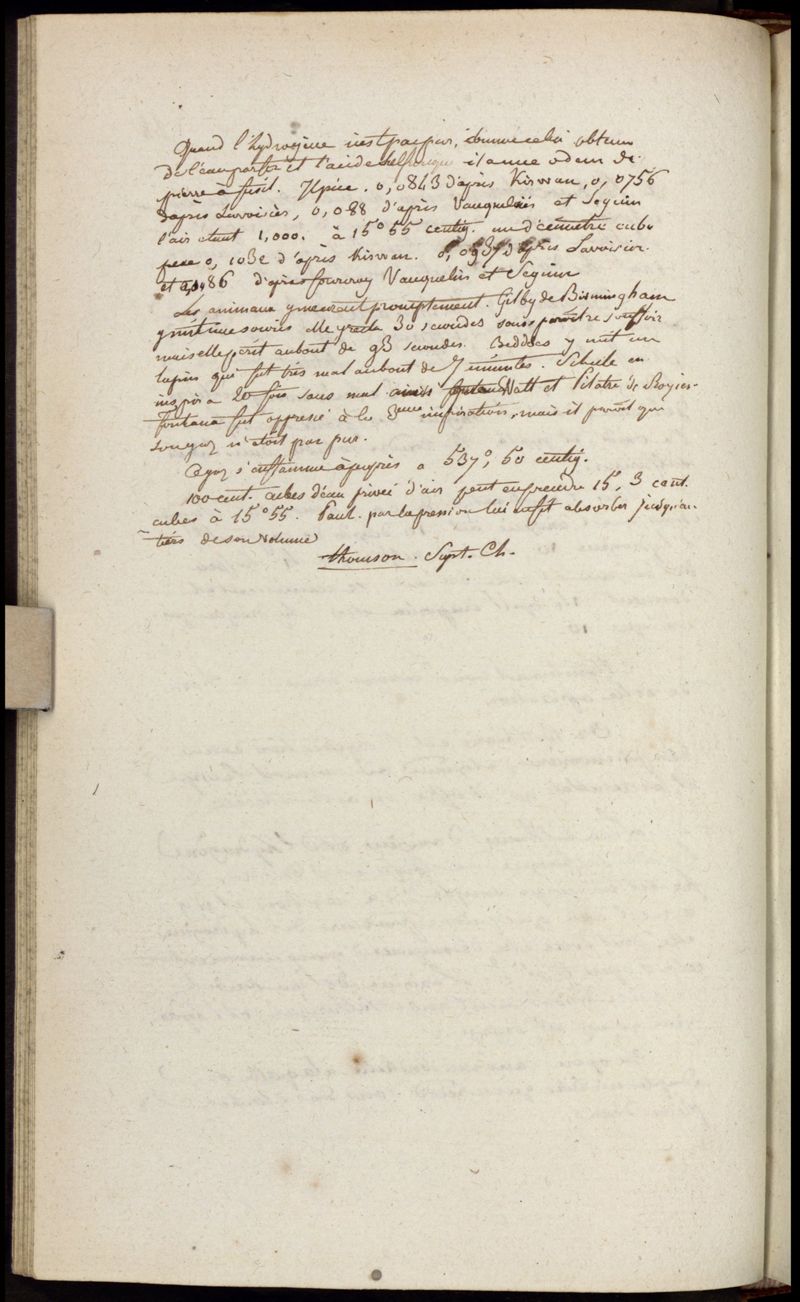 Quand l'hydrogène n'est pas pur, comme celui obtenu
de l'eau par fer et l'acide sulfurique il a une odeur de
pierre à fusil. Il pèse. 0,0843 d'après Kirwan, 0,0756
d'après Lavoisier, 0,088 d'après Vauquelin et Seguin
l'air étant 1,000. à 15°55 centig. un décimètre cube
pese 0, 1032 d'après Kirwan. d'après Lavoisier.
et 0,0986 d'après fourcroy Vauquelin et Seguin
Les animaux y meurent promptement. Gilby de Birmingham
y mit une souris elle y resta 30 secondes sans paroître souffrir
mais elle périt au bout de 93 secondes. Beddoes y mit un
lapin qui fut très mal au bout de 7 minutes. Schèele en
inspira 20 fois sans mal ainsi Watt et Pilatre de Rozier.
fontana fut oppressé à la 3eme inspiration, mais il paroit que
son gaz n'étoit pas pur.
Ce gaz s'enflamme à peu près a 537°, 50 centig.
100 cent. cubes d'eau privée d'air peut en prendre 15, 3 cent.
cubes à 15°55. Paul. par la pression lui en fit absorber jusqu'au
tiers de son volume
thomson. Syst. Ch.